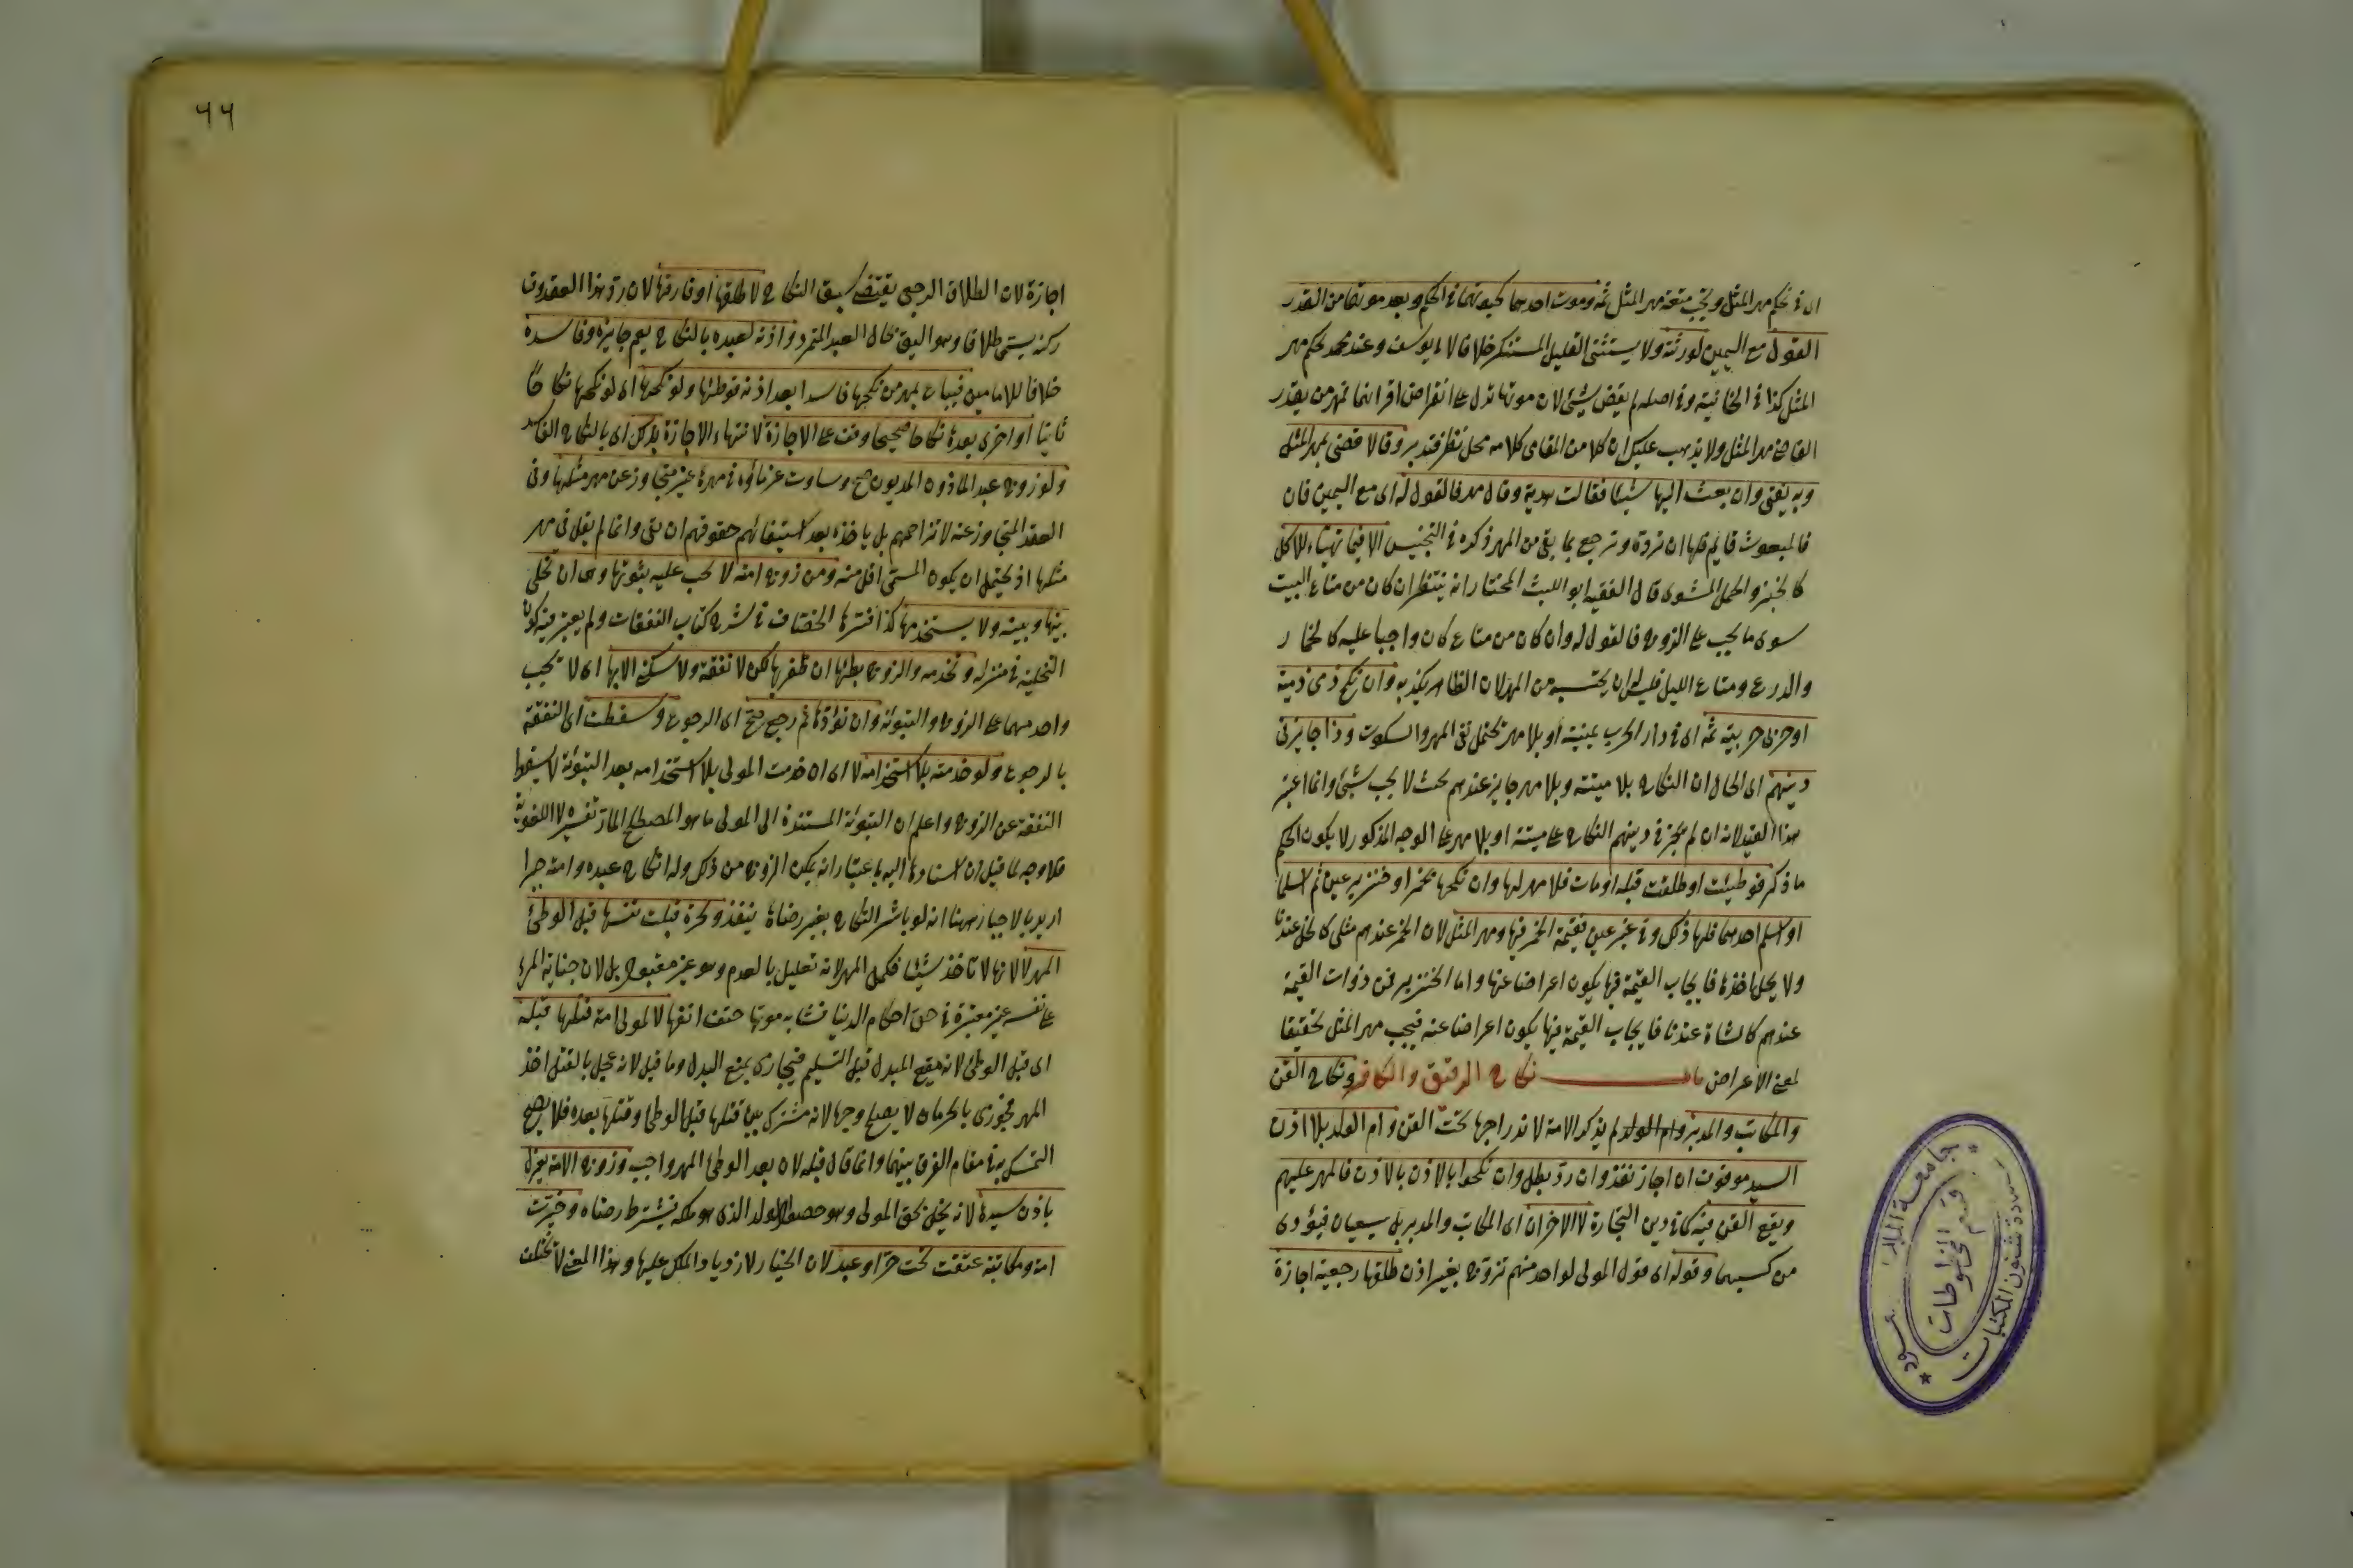 اى فى تحكيم مهر المثل وتجب متعة مهر المثل ثمه وموت احدهما كحيوتهما فى الحكم وبعد موتهما من القدر
القول مع اليمين لورثته ولا يستثنى القليل المستنكر خلافا لابى يوسف وعند محمد يحكم مهر
المثل كذا فى الخانية وفى اصله لم يقض بشئ لان موتهما تدل على انقراض اقرانهما فبمهر من يقدر
القاضى مهر المثل ولا يذهب عليك ان كلا من المقامى كلامه محل نظر فتدبر وقالا قضى بمهر المثل
وبه يفتى وان بعث اليها شيئا فقالت هدية وقال مهر فالقول له اى مع اليمين فان
فالمبعوث قايم فلها ان ترده وترجع بما بقى من المهر ذكره فى التجنيس الا فيما تهيئاء للاكل
كالخبز والحمل المشوى قال الفقيه ابو الليث المختار انه ينظر ان كان من متاع البيت
سوى ما يجب على الزوج فالقول له وان كان من متاع كان واجبا عليه كالخمار
والدرع ومتاع الليل فليس له ان يحتسبه من المهر لان الظاهر يكذبه وان نكح ذمى ذمية
او حربى حربية ثمه اى فى دار الحرب بميتة او بلا مهر يحتمل نفى المهر والسكوت وذا جايز فى
دينهم اى الحال ان النكاح بلا ميتة وبلا مهر جايز عندهم بحث لا يجب شئ وانما اعتبر
هذا القيد لانه ان لم يجز فى دينهم النكاح على ميتة او بلا مهر على الوجه المذكور لا يكون الحكم
ما ذكر فوطيئت او طلقت قبله او مات فلا مهر لها وان نكحها بخمر او خنزير عين ثم اسلما
او اسلم احدهما فلها ذلك وفى غير عين فقيمة الخمر فيها ومهر المثل لان الخمر عندهم مثلى كالخل عندنا
ولا يحل اخذها فايجاب القيمة فيها يكون اعراضا عنها واما الخنزير فمن ذوات القيمة
عندهم كالشاة عندنا فايجاب القيمة فيها يكون اعراضا عنه فيجب مهر المثل تحقيقا
لمعنى الاعراض باب نكاح الرقيق والكافر ونكاح القن
والمكاتب والمدبر وام الولد لم يذكر الامة لاندراجها تحت القن وام الولد بلا اذن
السيد موقوف ان اجاز نفذ وان رد بطل وان نكحوا بالاذن بالاذن فالمهر عليهم
وبيع القن فيه كما فى دين التجارة لا الاخران اى المكاتب والمدبر بل يسعيان فيؤدى
من كسبهما وقوله اى قول المولى لواحد منهم تزوج بغير اذن طلقها رجعية اجازة
٦٦
اجازة لان الطلاق الرجعى يقتضى سبق النكاح لا طلقها او فارقها لان رد هذا العقد وت
ركه يسمى طلاقا وهو اليق بحال العبد المتمرد واذنه لعبده بالنكاح يعم جايزه وفاسده
خلافا للامامين فيباع بمهر من نكحها فاسدا بعد اذنه فوطئها ولو نكحها اى لو نكحها نكاحا
ثانيا او اخرى بعدها نكاحا صحيحا وقف على الاجازة لانتهاء الاجازة بذلك اى بالنكاح الفاسد
ولو زوج عبدا ماذونا المديون صح وساوت غرماؤه فى مهرها غير متجاوز عن مهر مثلها وفى
العقد المتجاوز عنه لا تزاحمهم بل ياخذه بعد استيفائهم حقوقهم ان بقى وانما لم يقل فى مهر
مثلها اذ يحتمل ان يكون المسمى اقل منه ومن زوج امته لا يجب عليه تبوئتها وهى ان تخلى
بينها وبينه ولا يستخدمها كذا فسرها الخصاف فى شرح كتاب النفقات ولم يعتبر فيه كون
التخلية فى منزله وتخدمه والزوج يطئها ان ظفر بها لكن لا نفقة ولا سكنى الا بها اى لا تجب
واحد منهما على الزوج والتبوئة وان بوأها ثم رجع صح اى الرجوع وسقطت اى النفقة
بالرجوع ولو خدمته بلا استخدامه لا اى ان خدمت المولى بلا استخدامه بعد التبوئة لا يسقط
النفقة عن الزوج واعلم ان التبوئة المستندة الى المولى ما هو المصطلح المار تفسيره لا اللغوية
فلا وجه لما قيل ان اسنادها اليه باعتبار انه يمكن الزوج من ذلك وله انكاح عبده وامته جبرا
اريد بالاجبار ههنا انه لو باشر النكاح بغير رضاه ينفذ ولحرة قبلت نفسها قبل الوطئ
المهر لا لانها لا تاخذ شيئا فكمل المهر لانه تعليل بالعدم وهو غير مقبول بل لان جناية المرء
على نفسه غير معتبرة فى حق احكام الدنيا فشابه موتها حتف انفها لا لمولى امة قتلها قبله
اى قبل الوطئ لانه منع المبدل قبل التسليم فيجازى بمنع البدل وما قيل لانه عجل بالقتل اخذ
المهر فجوزى بالحرمان لا يصلح وجها لانه مشترك بين قتلها قبل الوطئ وقتلها بعده فلا يصح
التمسك به فى مقام الفرق بينهما وانما قال قبله لان بعد الوطئ المهر واجب وزوج الامة يعزل
باذن سيدها لانه يخل بحق المولى وهو حصول الولد الذى هو ملكه فيشترط رضاه وخيرت
امة ومكاتبة عتقت تحت حر او عبد لان الخيار لازدياد الملك عليها وهذا المعنى لا يختلف
جامعة الملك سعود
عمادة شئون المكتبات
قسم المخطوطات